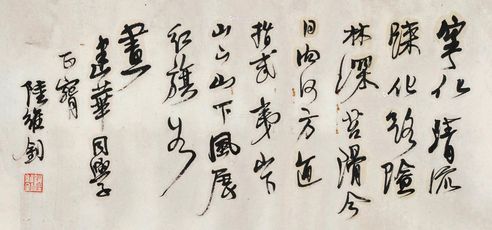 寧化清流
歸化路隘
林深苔滑今
日向何方直
指武夷山下
山下山下風展
紅旗如
畫
華同學
正
陸維釗